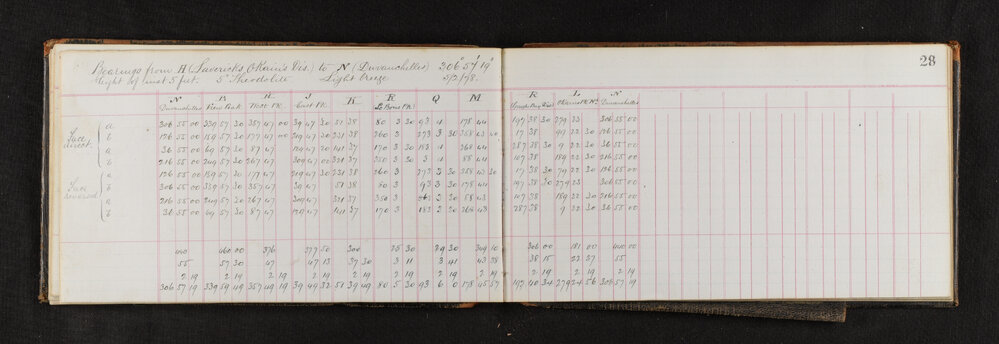 28
Bearings from A (Lavericks Okain's Dis.) to N (Duvauchelles) 306° 57' 19"
5" Theodolite Light breeze 5/2/78.
N B H J K R Q M R L N
Duvauchelles East Pk. Okains Pk Duvauchelles
Face direct.
a 306 55 00 339 57 30 357 47 00 39 47 30 51 38 80 3 30 93 4 178 44 197 38 30 279 23 306 55 00
b 126 55 00 159 57 30 177 47 00 219 47 30 231 38 260 3 273 3 30 358 43 40 17 38 99 22 30 126 55 00
a 36 55 00 69 57 30 87 47 129 47 30 141 37 170 3 30 183 4 268 44 287 38 30 9 22 30 36 55 00
b 216 55 00 249 57 30 267 47 309 47 00 321 37 350 3 30 3 4 88 44 107 38 189 22 30 216 55 00
Face reversed
a 126 55 00 159 57 30 177 47 219 47 30 231 38 260 3 273 3 30 358 43 30 17 38 30 99 22 30 126 55 00
b 306 55 00 339 57 30 357 47 39 47 51 38 80 3 93 3 30 178 44 197 38 30 279 23 306 55 00
a 216 55 00 249 57 30 267 47 309 47 321 37 350 3 3 30 88 43 107 38 189 22 30 216 55 00
b 36 55 00 69 57 30 87 47 129 47 141 37 170 3 183 3 30 268 43 287 38 9 22 30 36 55 00
440 460 00 376 377 50 300 25 30 29 30 349 10 306 00 181 00 440 00
55 57 30 47 47 13 37 30 3 11 3 41 43 38 38 15 22 37 55
2 19 2 19 2 19 2 19 2 19 2 19 2 19 2 19 2 19 2 19 2 19
306 57 19 339 59 49 357 49 19 39 49 32 51 39 49 80 5 30 93 6 0 178 45 57 197 40 34 279 24 56 306 57 19